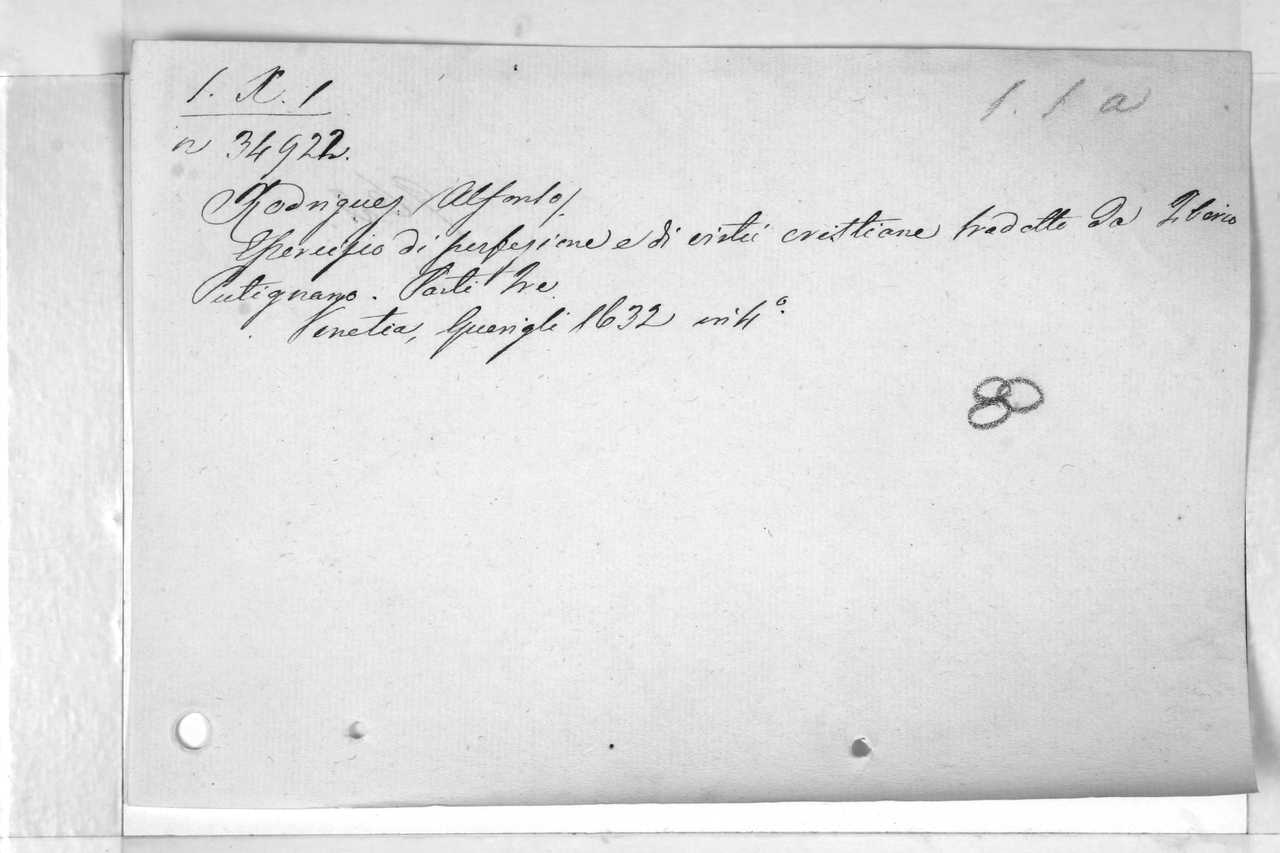 1. X. 1
1. 1 a
n 34922.
Rodriguez (Alfonso).
Esercizio di perfezione e di virtù cristiane tradotto da Tiberio
Putignano. Parti tre.
Venetia, Guerigli 1632 in 4°.